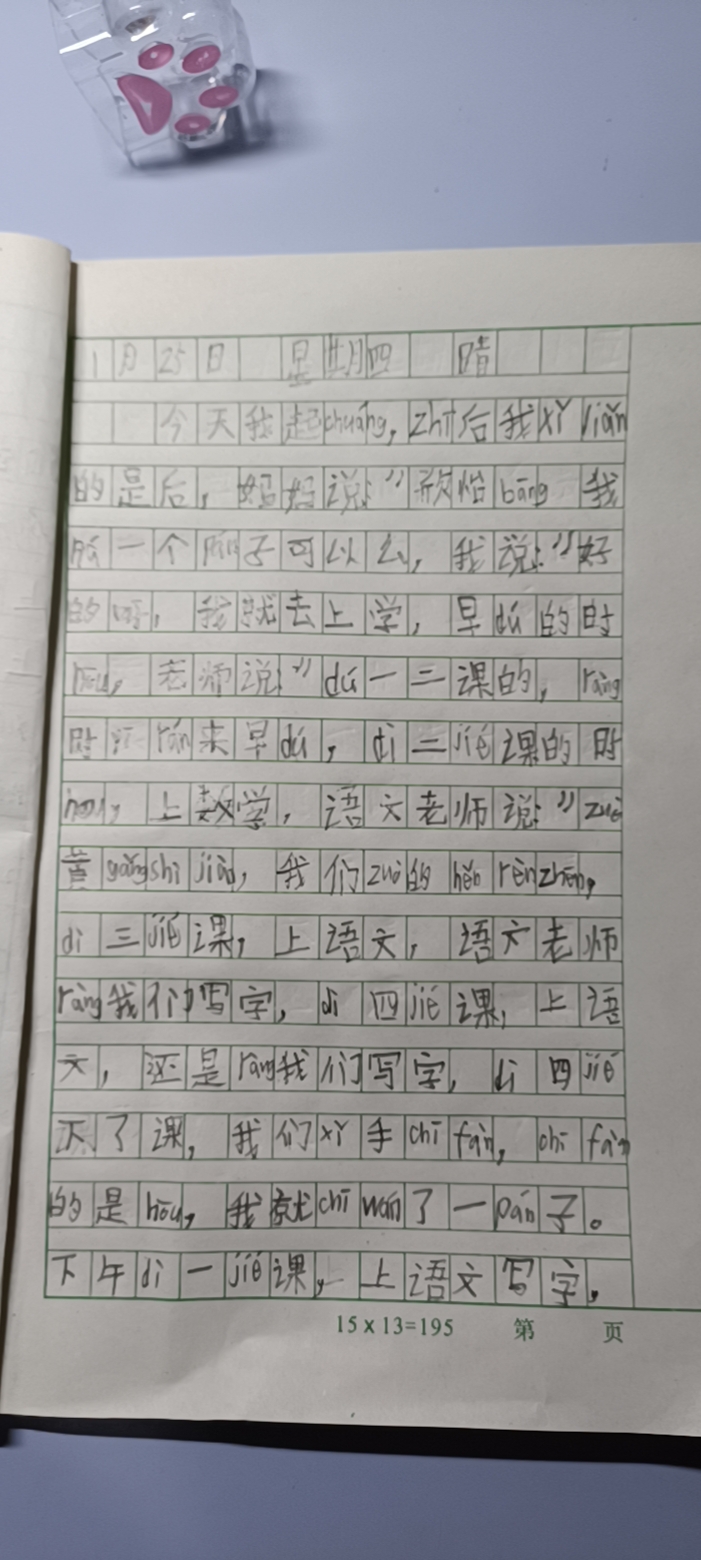 1月25日 星期四 晴
今天我起chuáng，zhī后我xǐ liǎn
的是后，妈妈说：“欣怡bāng我
一个 子可以么，我说：“好
的呀，我就去上学，早dú的时
hòu，老师说：“dú一二课的，ràng
时 rán来早dú，dì二jié课的时
hou，上数学，语文老师说：“zuò
黄gāngshì juàn，我们zuò的hěn rènzhēn，
dì三jié课，上语文，语文老师
ràng我们写字，dì四jié课，上语
文，还是ràng我们写字，dì四jié
下了课，我们xǐ手chī fàn，chī fàn
的是hòu，我就chī wán了一pán子。
下午dì一jié课，上语文写字，
15×13=195 第 页